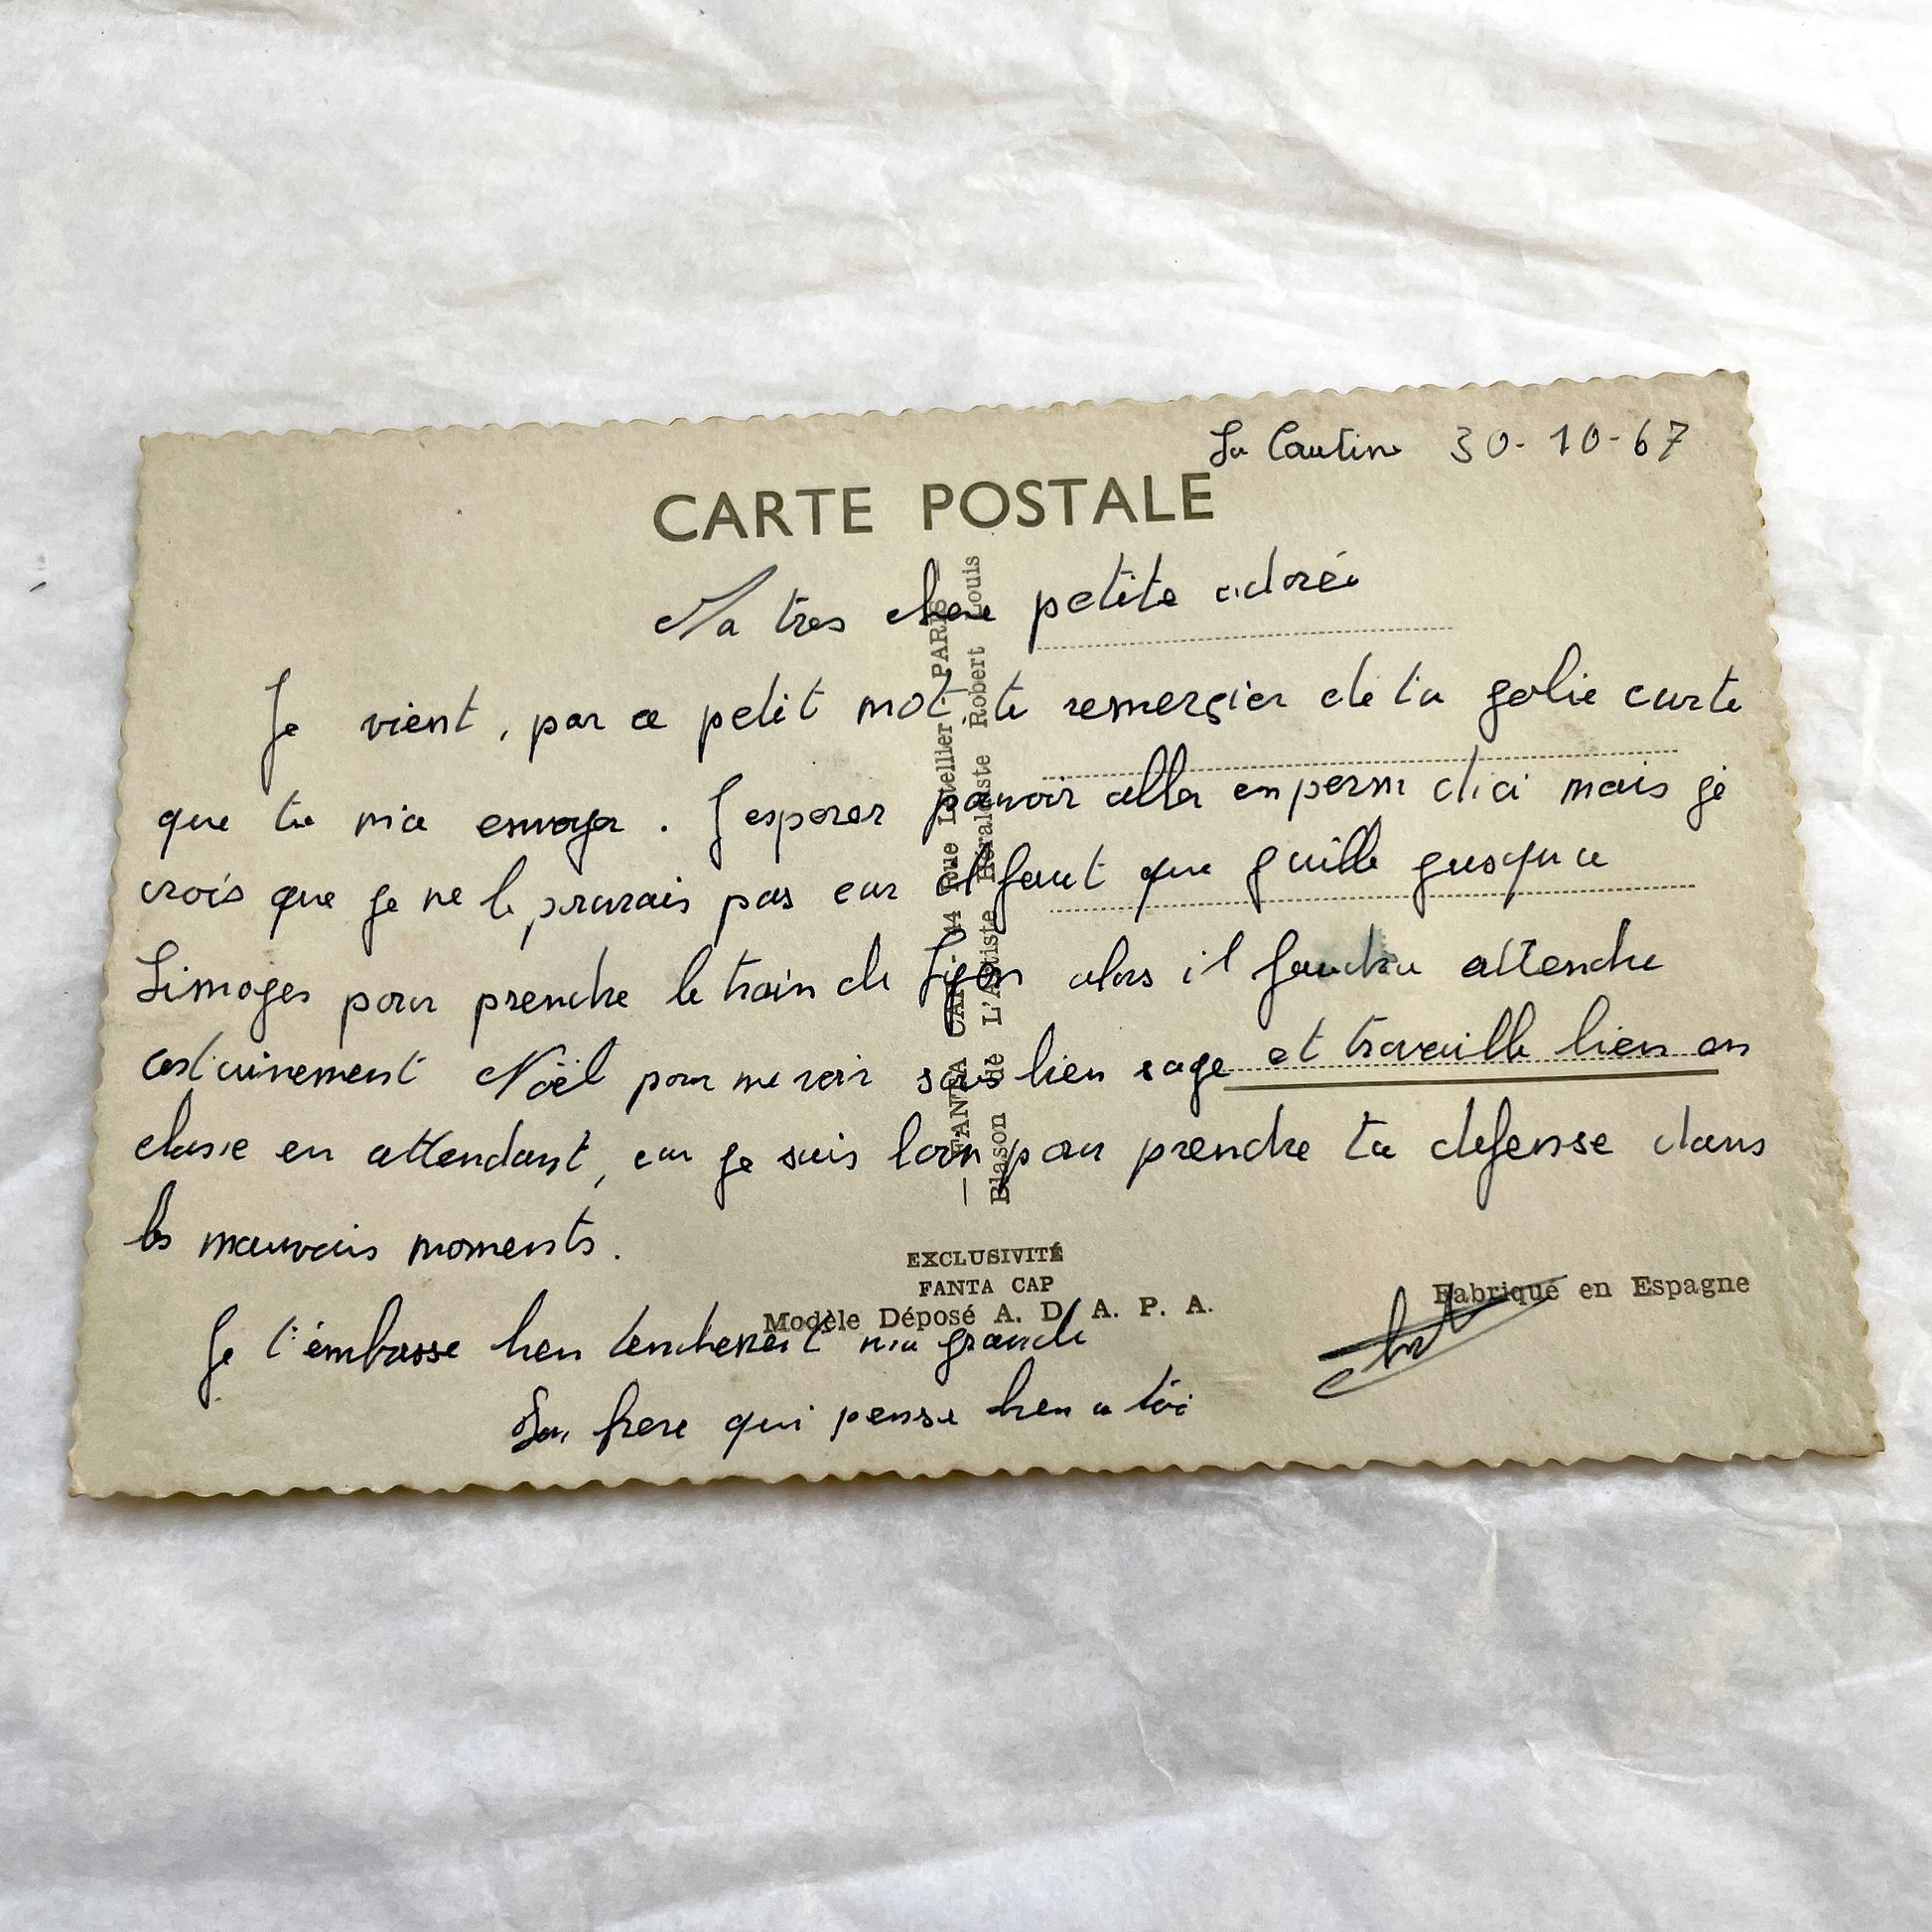 La Courtine 30-10-67
CARTE POSTALE
Ma tres chere petite adorée
Je vient, par ce petit mot te remerçier de ta golie carte
que tu m'a envoyer. J'esperer pouvoir aller en perm d'ici mais je
crois que je ne le pourais pas car il faut que j'aille jusqu'a
Limoges pour prendre le train de Lyon alors il faudra attendre
certainement Noël pour me voir sois bien sage et travaille bien en
classe en attendant, car je suis loin pour prendre ta defense dans
les mauvais moments.
Je t'embrasse bien tendrement ma grande
Ton frere qui pense bien a toi
— FANTA CAP - 44 rue Letellier - PARIS —
Blason de L'Artiste Héraldiste Robert Louis
EXCLUSIVITÉ
FANTA CAP
Modèle Déposé A. D. A. P. A.
Fabriqué en Espagne